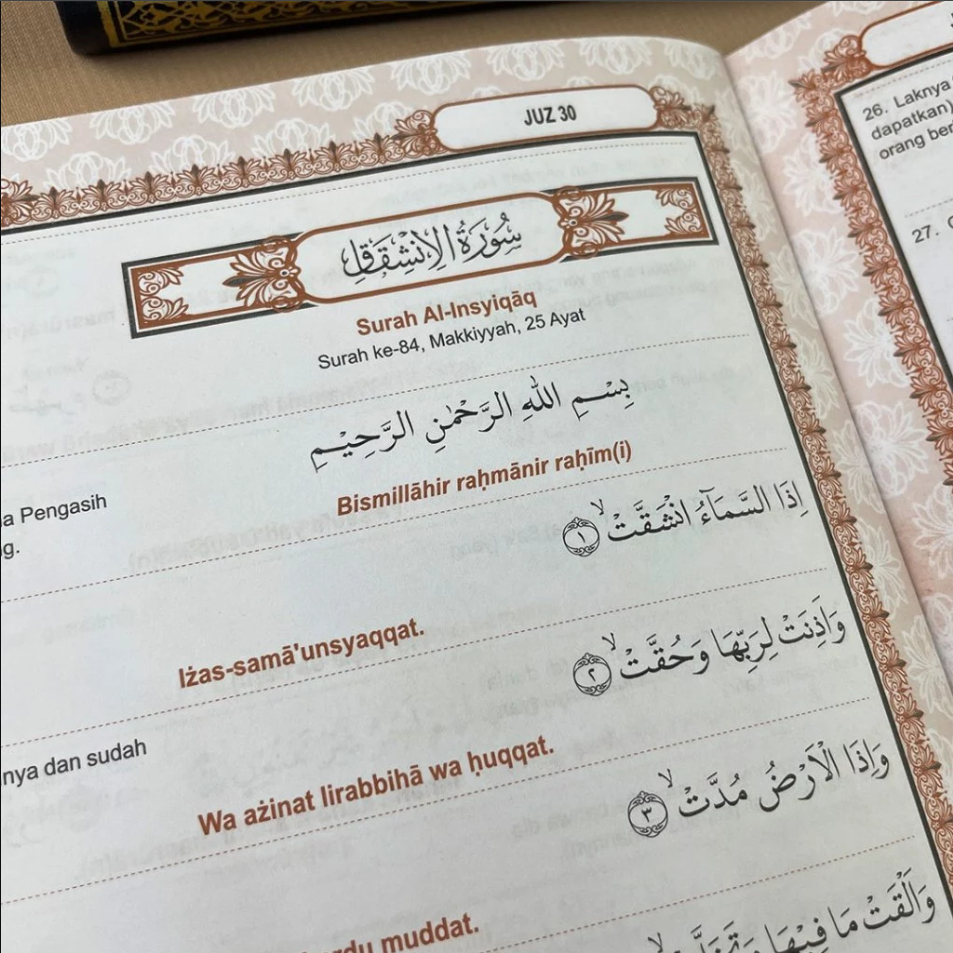 JUZ 30
سُورَةُ الْاِنْشِقَاقِ
Surah Al-Insyiqāq
Surah ke-84, Makkiyyah, 25 Ayat
بِسْمِ اللّٰهِ الرَّحْمٰنِ الرَّحِيْمِ
Bismillāhir raḥmānir raḥīm(i)
a Pengasih
g.
اِذَا السَّمَاۤءُ انْشَقَّتْۙ ١
Iżas-samā'unsyaqqat.
وَاَذِنَتْ لِرَبِّهَا وَحُقَّتْۙ ٢
nya dan sudah
Wa ażinat lirabbihā wa ḥuqqat.
وَاِذَا الْاَرْضُ مُدَّتْۙ ٣
muddat.
وَاَلْقَتْ مَا فِيْهَا
26. Laknya
dapatkan)
orang ber
27.